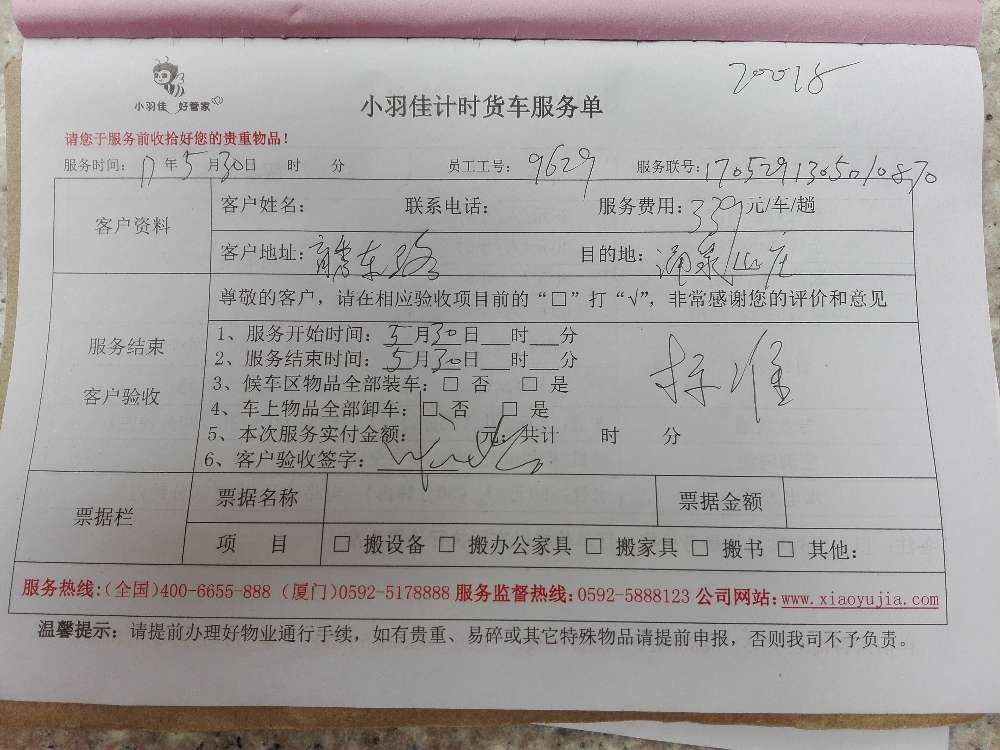 20018
小羽佳 好管家
小羽佳计时货车服务单
请您于服务前收拾好您的贵重物品!
服务时间: 17 年 5 月 30 日 时 分 员工工号: 9629 服务联号: 1705291305010870
客户资料
客户姓名: 联系电话: 服务费用: 339 元/车/趟
客户地址: 东路 目的地: 涌泉山庄
服务结束
客户验收
尊敬的客户，请在相应验收项目前的“□”打“√”，非常感谢您的评价和意见
1、服务开始时间: 5 月 30 日___时___分
2、服务结束时间: 5 月 30 日___时___分
标准
3、候车区物品全部装车: □ 否 □ 是
4、车上物品全部卸车: □ 否 □ 是
5、本次服务实付金额: 元; 共计 时 分
6、客户验收签字:
票据栏
票据名称 票据金额
项 目 □ 搬设备 □ 搬办公家具 □ 搬家具 □ 搬书 □ 其他:
服务热线:(全国)400-6655-888 (厦门)0592-5178888 服务监督热线:0592-5888123 公司网站:www.xiaoyujia.com
温馨提示: 请提前办理好物业通行手续，如有贵重、易碎或其它特殊物品请提前申报，否则我司不予负责。